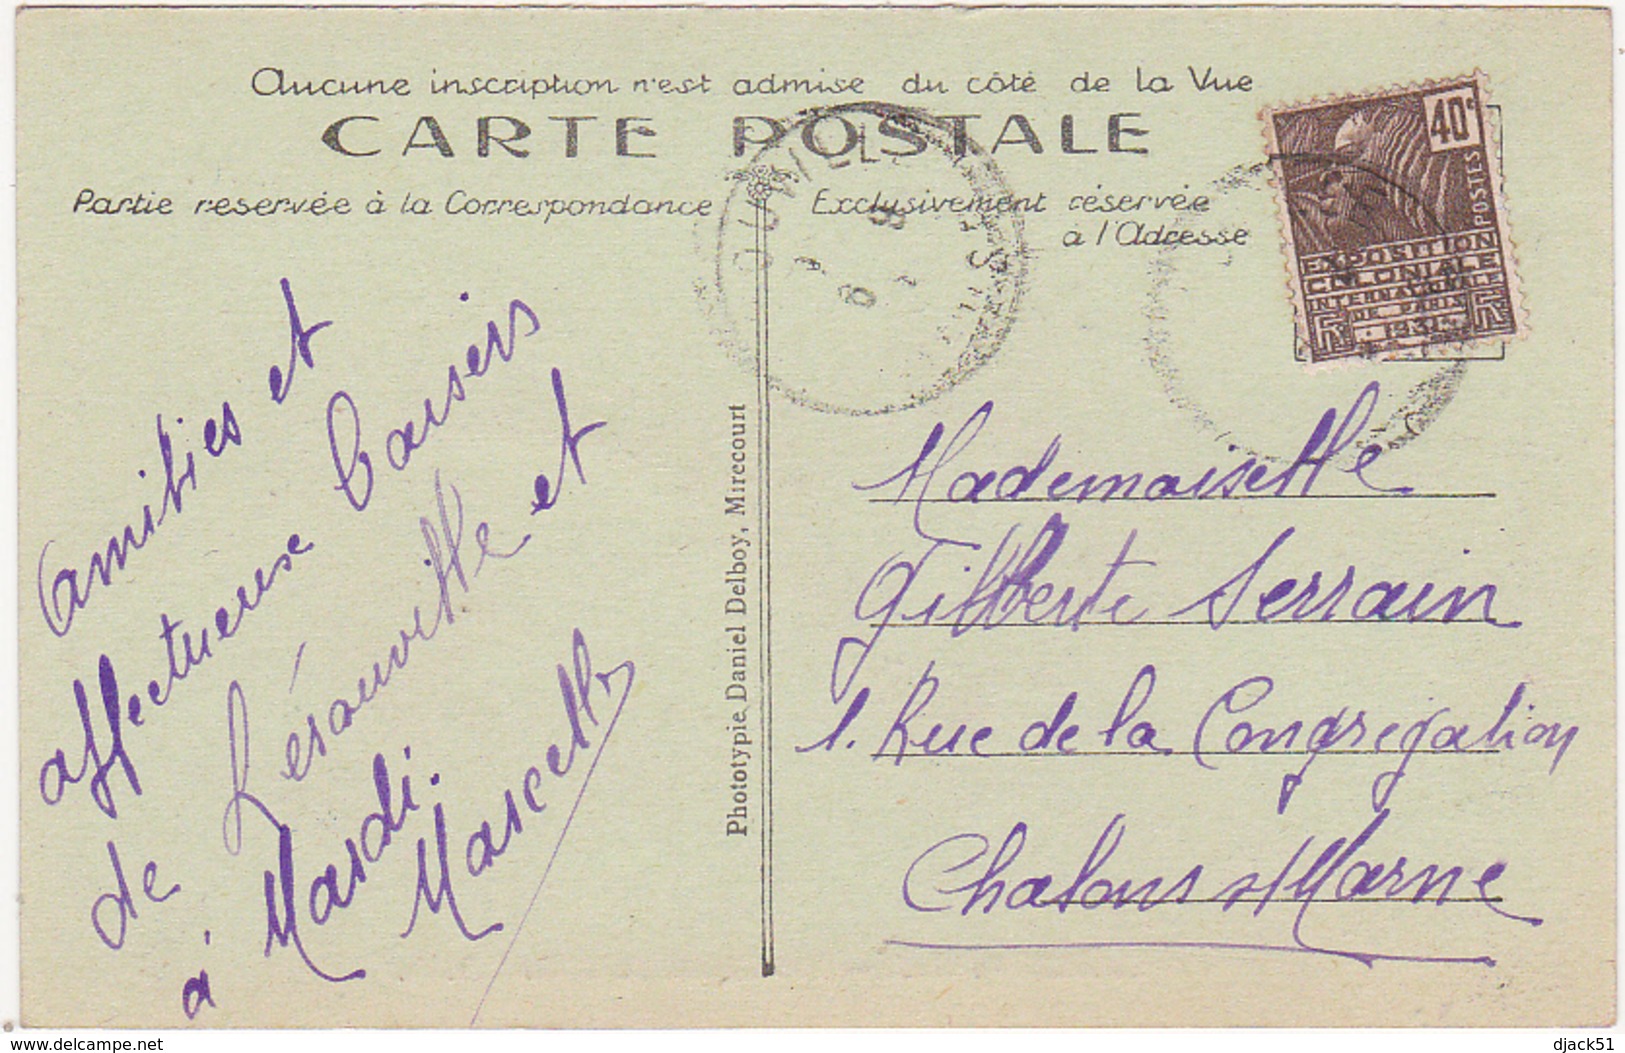 Aucune inscription n'est admise du côté de la Vue
CARTE POSTALE
Partie reservée à la Correspondance
Exclusivement réservée
à l'Adresse
40c
POSTES
EXPOSITION
COLONIALE
INTERNATIONALE
DE PARIS
1931
Amitiés et
affectueuse baisers
de Lésouville et
à Mardi.
Marcelle
Phototypie Daniel Delboy, Mirecourt
Mademoiselle
Gilberte Serrain
1. Rue de la Congregation
Chalons s/Marne
www.delcampe.net
djack51